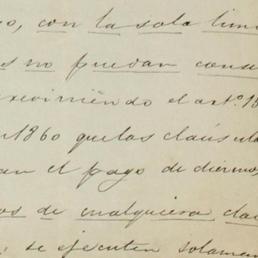 o, con la sola limi
s no puedan cons
el artº. 18
1860 que las cláusula
an el pago de diezmos
os de cualquiera cla
se ejecuten solamen